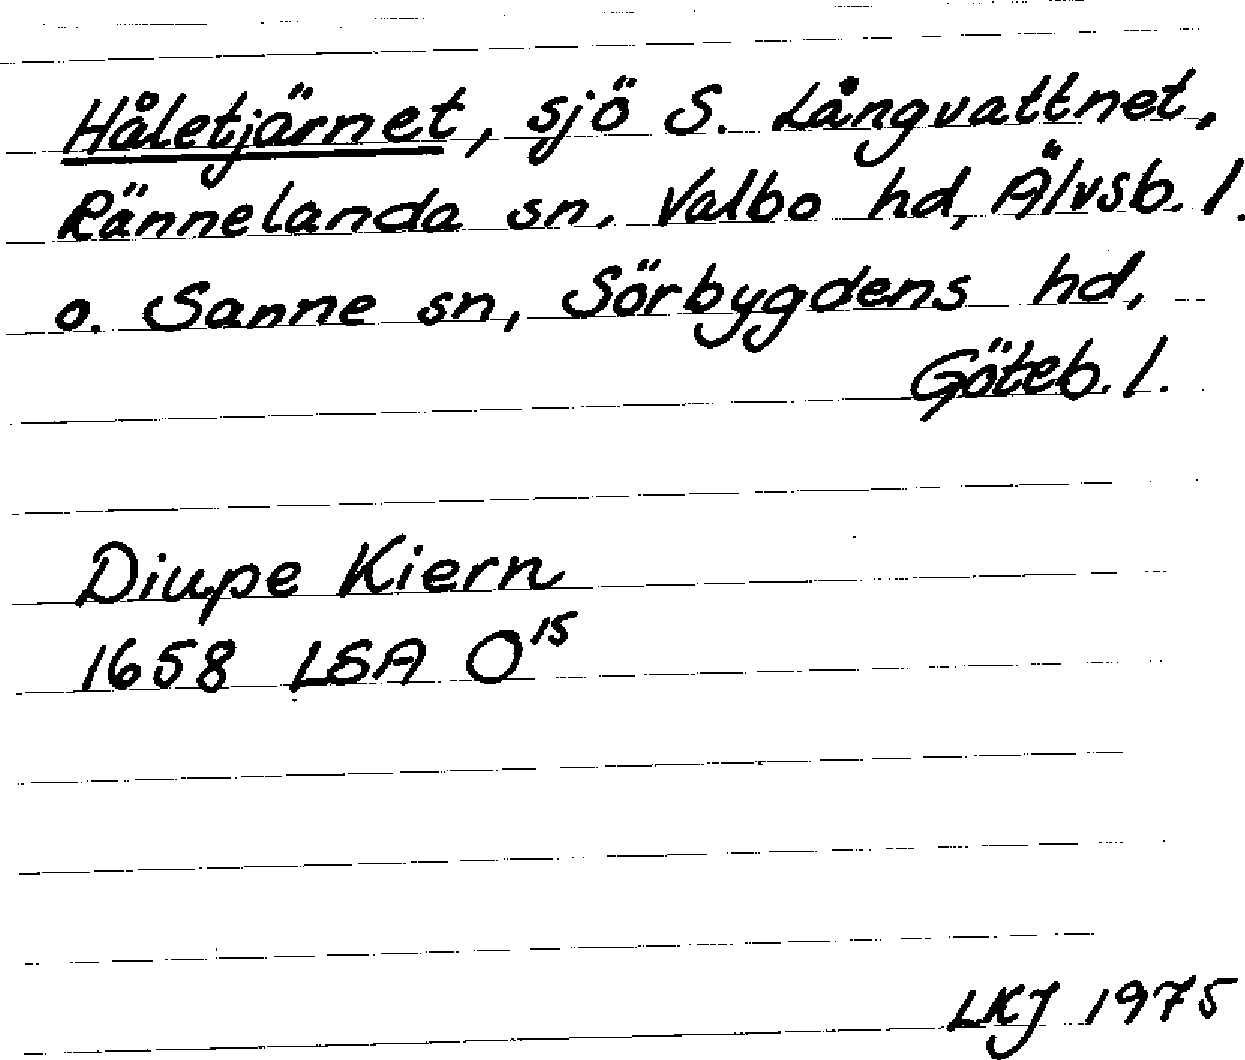 Håletjärnet, sjö S. Långvattnet,
Rännelanda sn, Valbo hd, Älvsb. l.
o. Sanne sn, Sörbygdens hd,
Göteb. l.
Diupe Kiern
1658 LSA O15
LKJ 1975